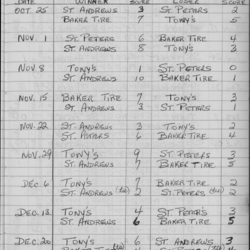 DATE WINNER SCORE LOSER SCORE
OCT. 25 ST. ANDREWS 3 ST. PETERS 2
BAKER TIRE 7 TONY'S 5
NOV. 1 ST. PETERS 6 BAKER TIRE 4
ST. ANDREWS 8 TONY'S 3
NOV. 8 TONY'S 1 ST. PETERS 0
ST. ANDREWS 10 BAKER TIRE 1
NOV. 15 BAKER TIRE 7 TONY'S 3
ST. ANDREWS 3 ST. PETERS 1
NOV. 22 ST. ANDREWS 3 TONY'S 2
ST. PETERS 6 BAKER TIRE 4
NOV. 29 TONY'S 9 ST. PETERS 3
ST. ANDREWS 7 BAKER TIRE 3
DEC. 6 TONY'S 7 ST. ANDREWS 2
BAKER TIRE 2 ST. PETERS 2
DEC. 13 TONY'S 4 ST. PETER'S 3
ST. ANDREWS 6 BAKER TIRE 5
DEC. 20 TONY'S 6 ST. ANDREWS 3